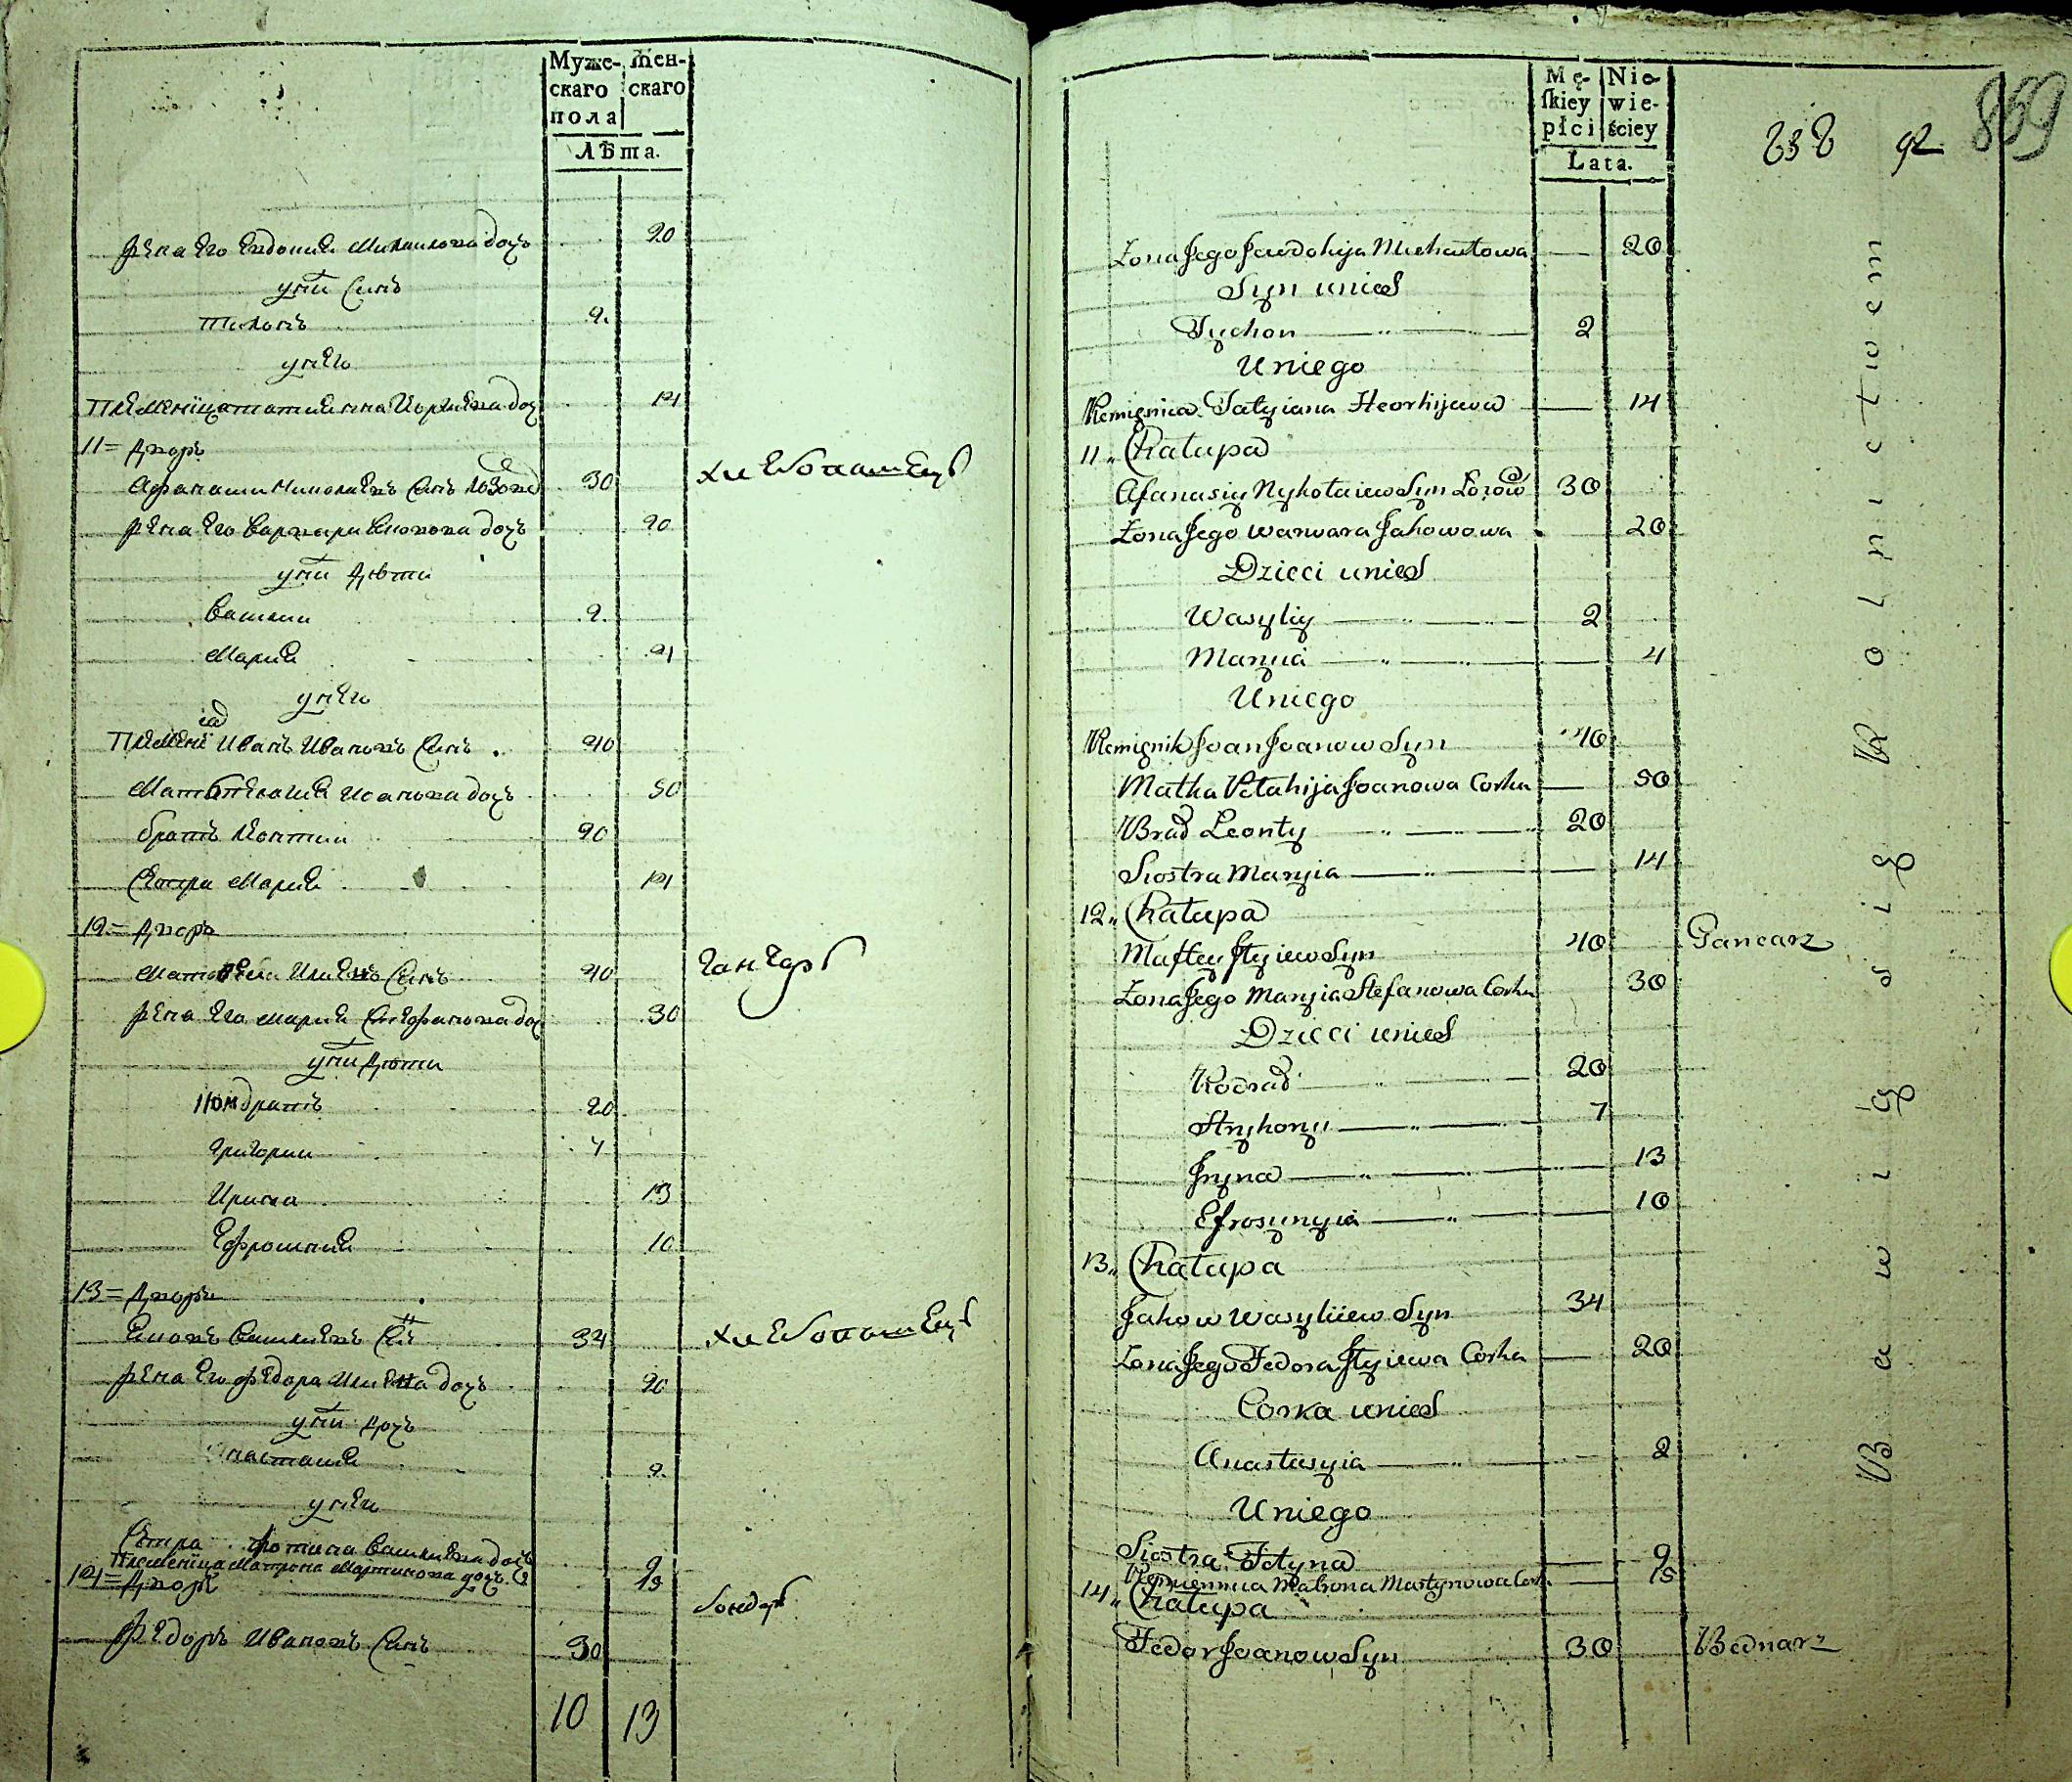 Муже-
скаго
пола
Жен-
скаго
Лѣта.
Жена Его Евдокия Михаилова дочъ 20
у нихъ Синъ
Тихонъ 2.
у нЕго
ПлЕменица Татиянна дочъ 14
11 = Дворъ
Афанаси Николаевъ Синъ 30 ХлЕбопашЕцъ
ЖЕна Его Варвара Яковова дочъ 20
у нихъ Дѣти
Василии 2.
Мария 4
у нЕго
ПлЕмЕніѣ Иванъ Ивановъ Синъ 40
Мать Иванова дочъ 50
братъ Леонтии 20
СЕстра Мария 14
12 = Дворъ
Матфей ИлиЕвъ Синъ 40 ганчаръ
ЖЕна Его Мария СтЕфанова доч 30
у нихъ Дѣти
Кондратъ 20
Григории 7
Ирина 13
Ефросиния 10
13 = Дворъ
Яковъ ВасилиЕвъ Синъ 34 ХлЕбопашЕцъ
ЖЕна Его ФЕдора ИлиЕва дочъ 20
у нихъ дочъ
Анастасия 2.
у нЕго
СЕстра Фотина ВасилиЕва дочъ 9
Племеница Матрона Мартинова дочъ 15
14 = Дворъ бондаръ
ФЕдоръ Ивановъ Синъ 30
10 13
Mę-
ſkiey
płci
Nie-
wie-
ściey
Lata.
859
Zona Jego Jewdokija Michaiłowa — 20
Syn unich
Tychon — 2
Uniego
Plemięnica Tatyiana Heorhijewa — 14
11 „ Chałupa
Afanasiy Nykołaiew Syn 30
Zona Jego Warwara Jakowowa 20
Dzieci unich
Wasyliy — 2
Maryia — 4
Uniego
Plemięnik Joan Joanow Syn 40
Matka Pełahija Joanowa Corka — 50
Brad Leonty — 20
Siostra Maryia — 14
12 „ Chałupa
Maftey Jłyiew Syn 40 Gancarz
Zona Jego Maryia Stefanowa Corka 30
Dzieci unich
Kodrad — 20
Hryhoryi — 7
Jryna — 13
Efrosynyia — 10
13 „ Chałupa
Jakow Wasyliiew Syn 34
Zona Jego Fedora Jłyiewa Corka — 20
Corka unich
Anastasyia — 2
Uniego
Siostra Fotyna — 9
Plemiennica Matrona Martynowa Cork. — 15
14 „ Chałupa
Fedor Joanow Syn 30 Bednarz
Bawią się Rolnictwem